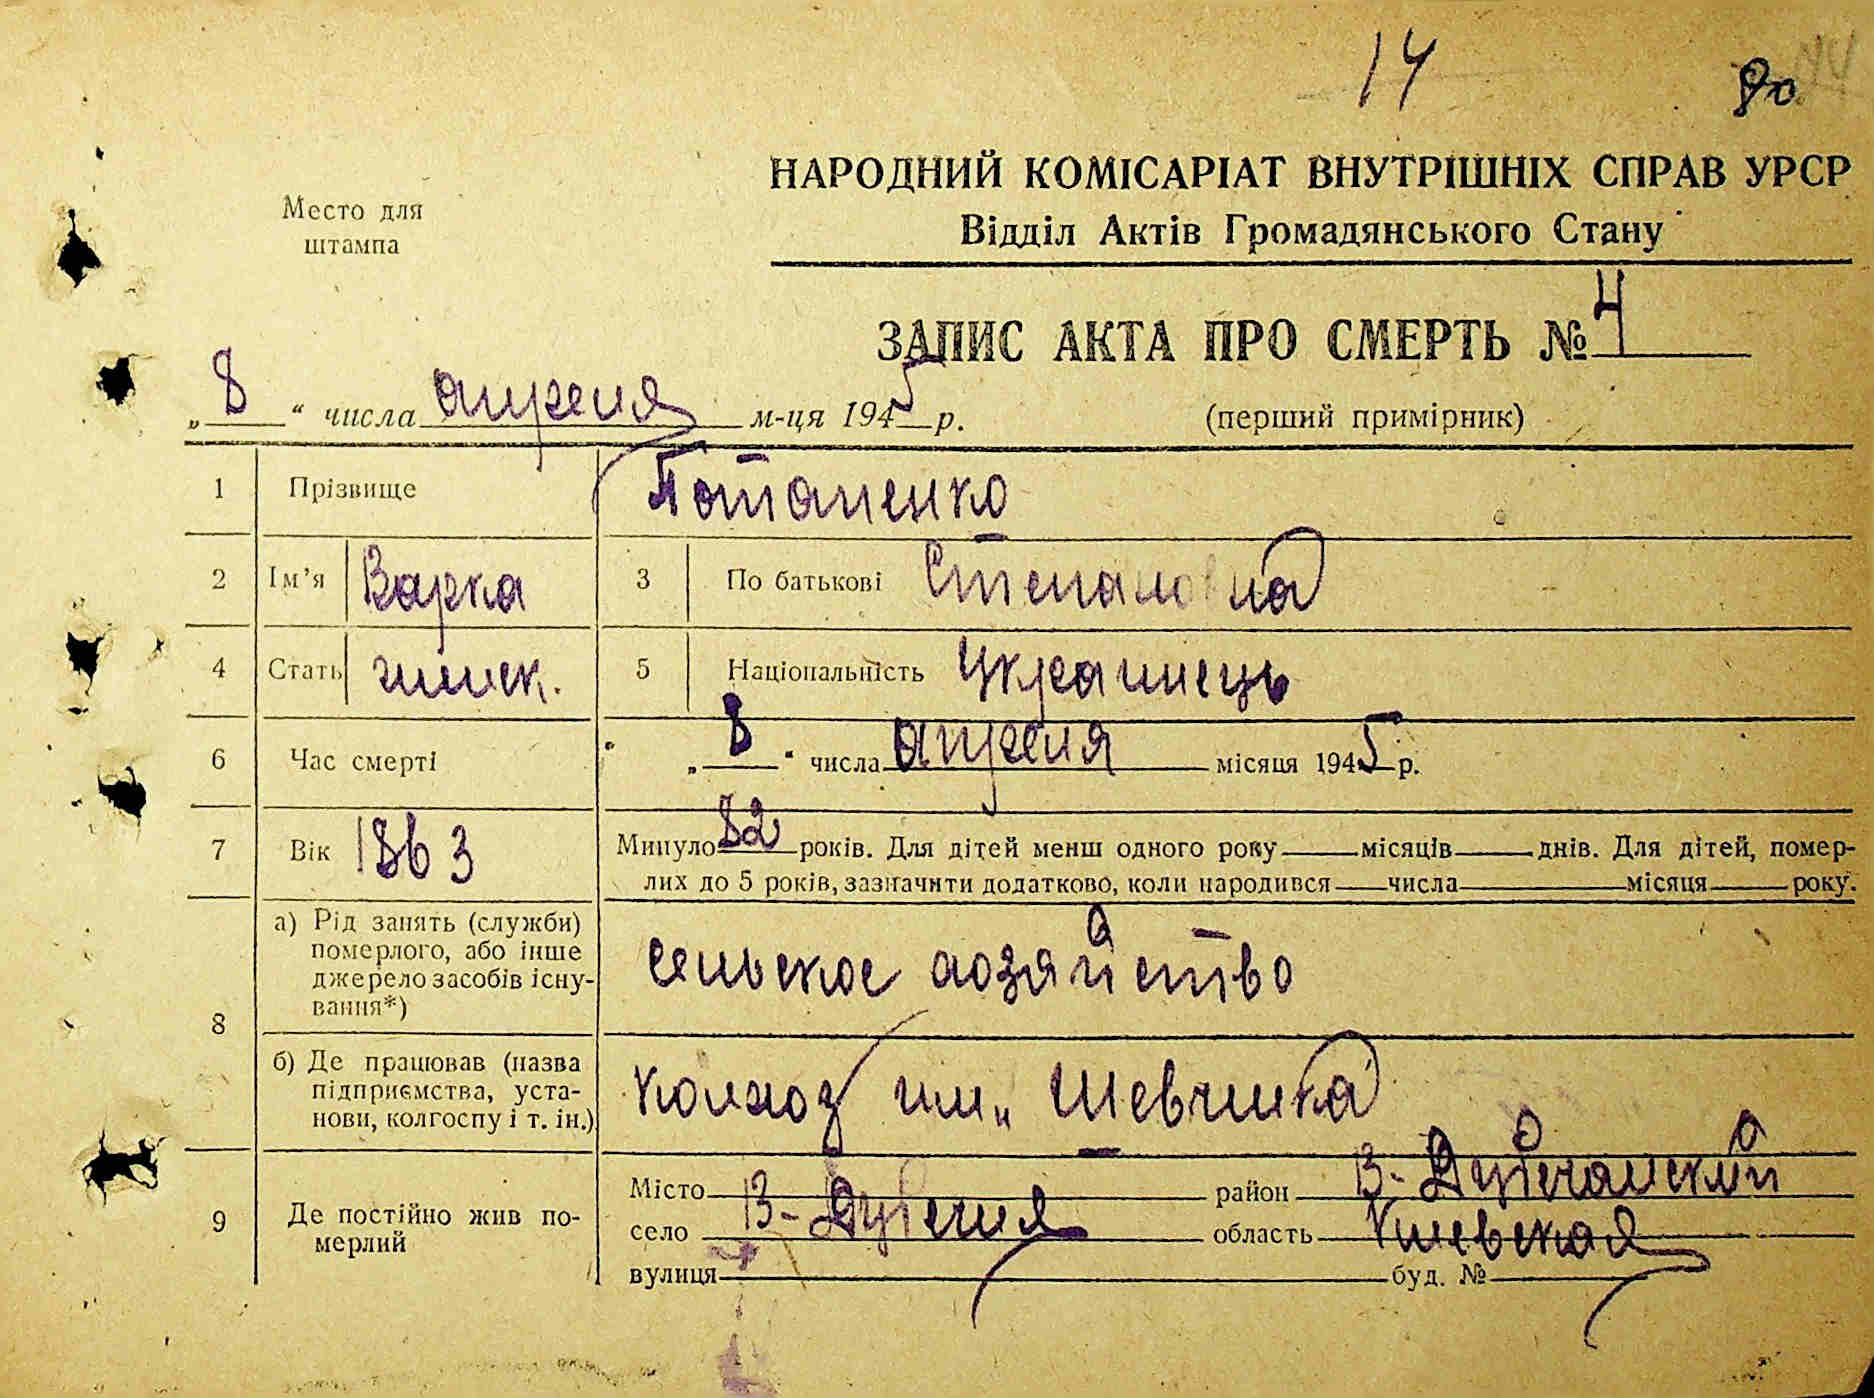 14 80
НАРОДНИЙ КОМІСАРІАТ ВНУТРІШНІХ СПРАВ УРСР
Место для
штампа
Відділ Актів Громадянського Стану
ЗАПИС АКТА ПРО СМЕРТЬ № 4
„8“ числа апреля м-ця 1945 р.
(перший примірник)
1 Прізвище Потапенко
2 Ім'я Варка 3 По батькові Степановна
4 Стать женск. 5 Національність Украинець
6 Час смерті „8“ числа апреля місяця 1945 р.
7 Вік 1863 Минуло 82 років. Для дітей менш одного року місяців днів. Для дітей, помер-
лих до 5 років, зазначити додатково, коли народився числа місяця року.
8 а) Рід занять (служби)
померлого, або інше
джерело засобів існу-
вання*)
сельское хозяйство
б) Де працював (назва
підприємства, уста-
нови, колгоспу і т. ін.)
колхоз им. Шевченка
9 Де постійно жив по-
мерлий
Місто район В-Дубечанский
село В-Дубечня область Киевская
вулиця буд. №